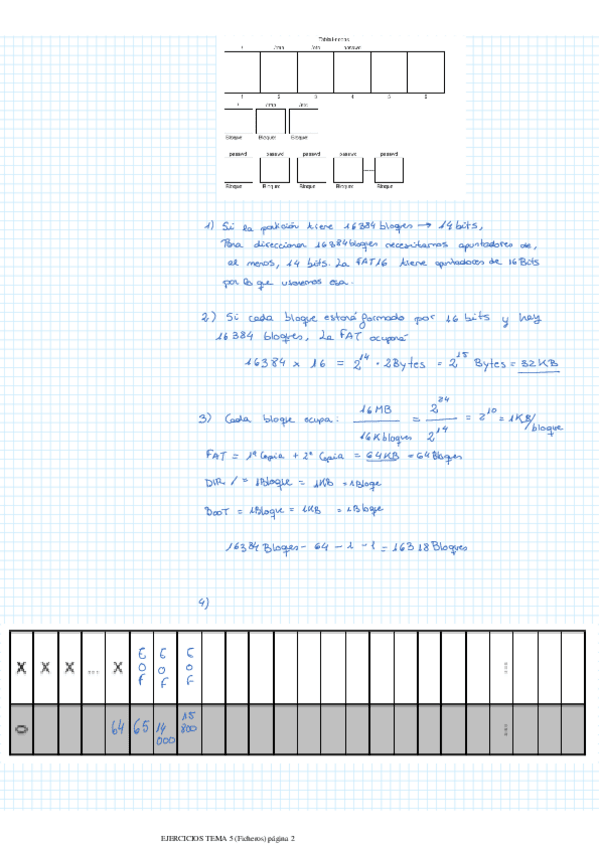 Tabla i-nodos
/ /tmp /etc passwd
1 2 3 4 5 6
/ /tmp /etc
Bloque Bloque Bloque
passwd passwd passwd passwd passwd
Bloque Bloque Bloque Bloque Bloque
1) Si la partición tiene 16384 bloques → 14 bits,
Para direccionar 16384 bloques necesitamos apuntadores de,
al menos, 14 bits. La FAT16 tiene apuntadores de 16 Bits
por lo que usaremos esa.
2) Si cada bloque estará formado por 16 bits y hay
16384 bloques, La FAT ocupará
16384 x 16 = 2^14 · 2Bytes = 2^15 Bytes = 32 KB
3) Cada bloque ocupa: 16MB / 16K bloques = 2^24 / 2^14 = 2^10 = 1KB/bloque
FAT = 1ª Copia + 2ª Copia = 64KB = 64 Bloques
DIR / = 1Bloque = 1KB = 1Bloque
BOOT = 1Bloque = 1KB = 1Bloque
16384 Bloques - 64 - 1 - 1 = 16318 Bloques
4)
X X X ... X EOF EOF EOF ...
0 64 65 14000 15800 ...
EJERCICIOS TEMA 5 (Ficheros) página 2